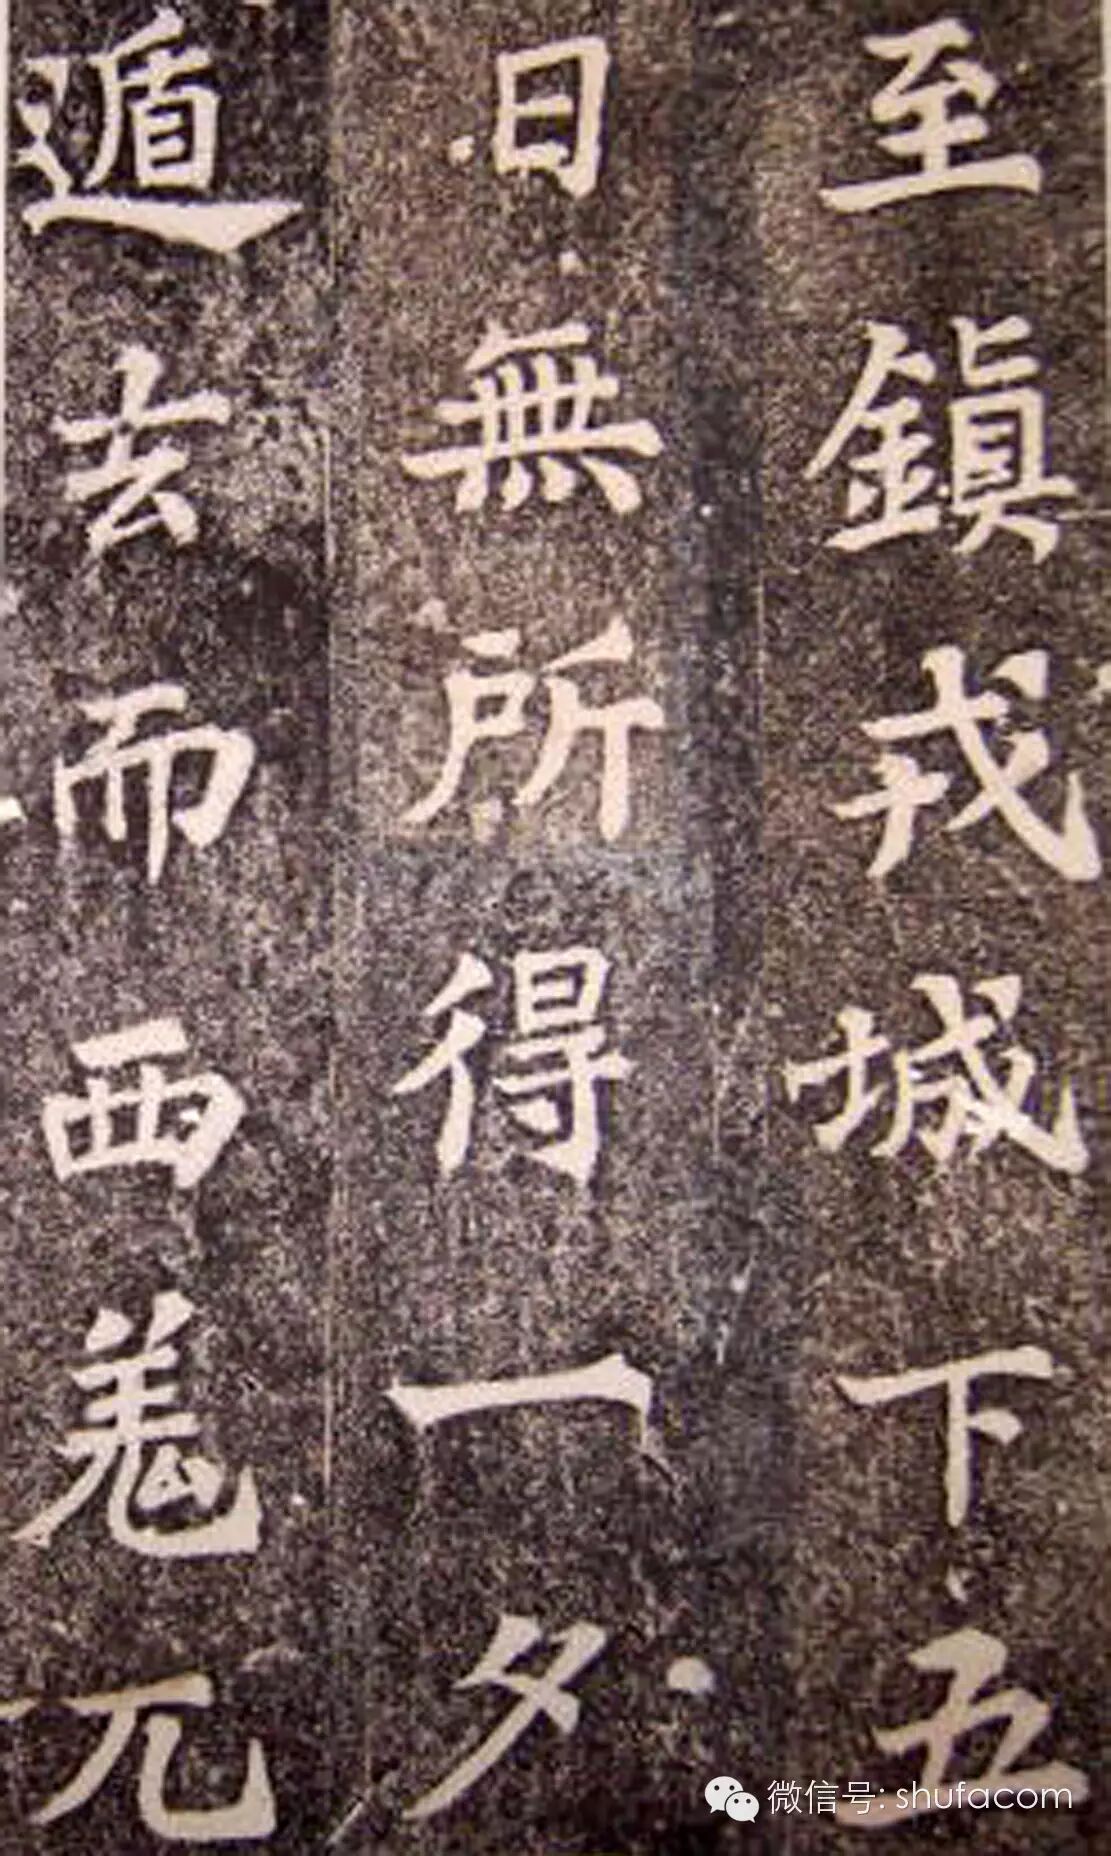 至鎮戎城下五
日無所得一夕
遁去而西羌兀
微信号: shufacom